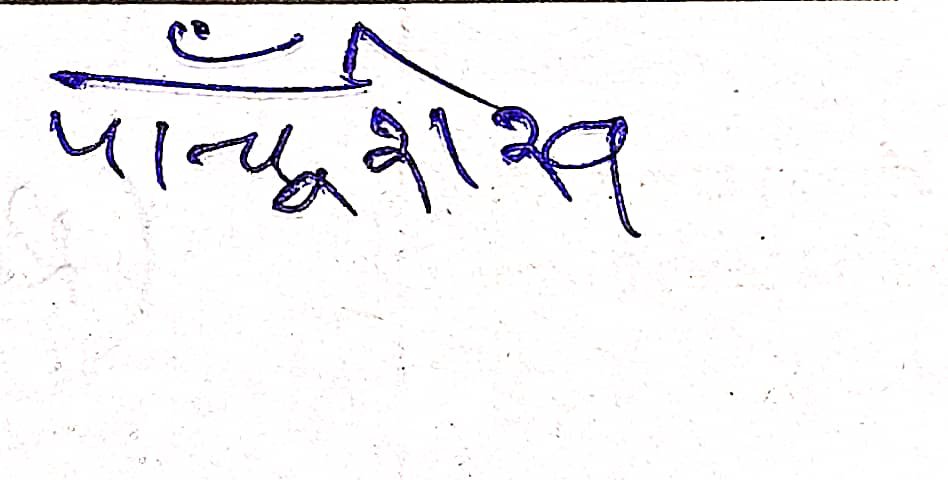 पाँचू शेख